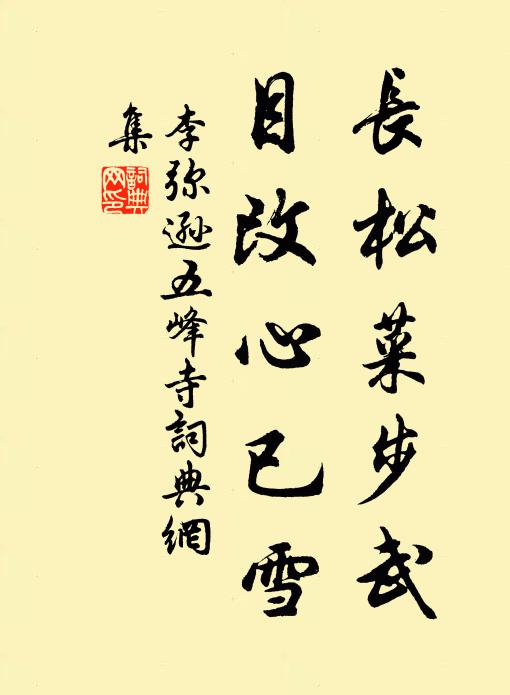 長松葉步武
目改心已雪
李弥遜五峰寺詞典網
集
詞典網印